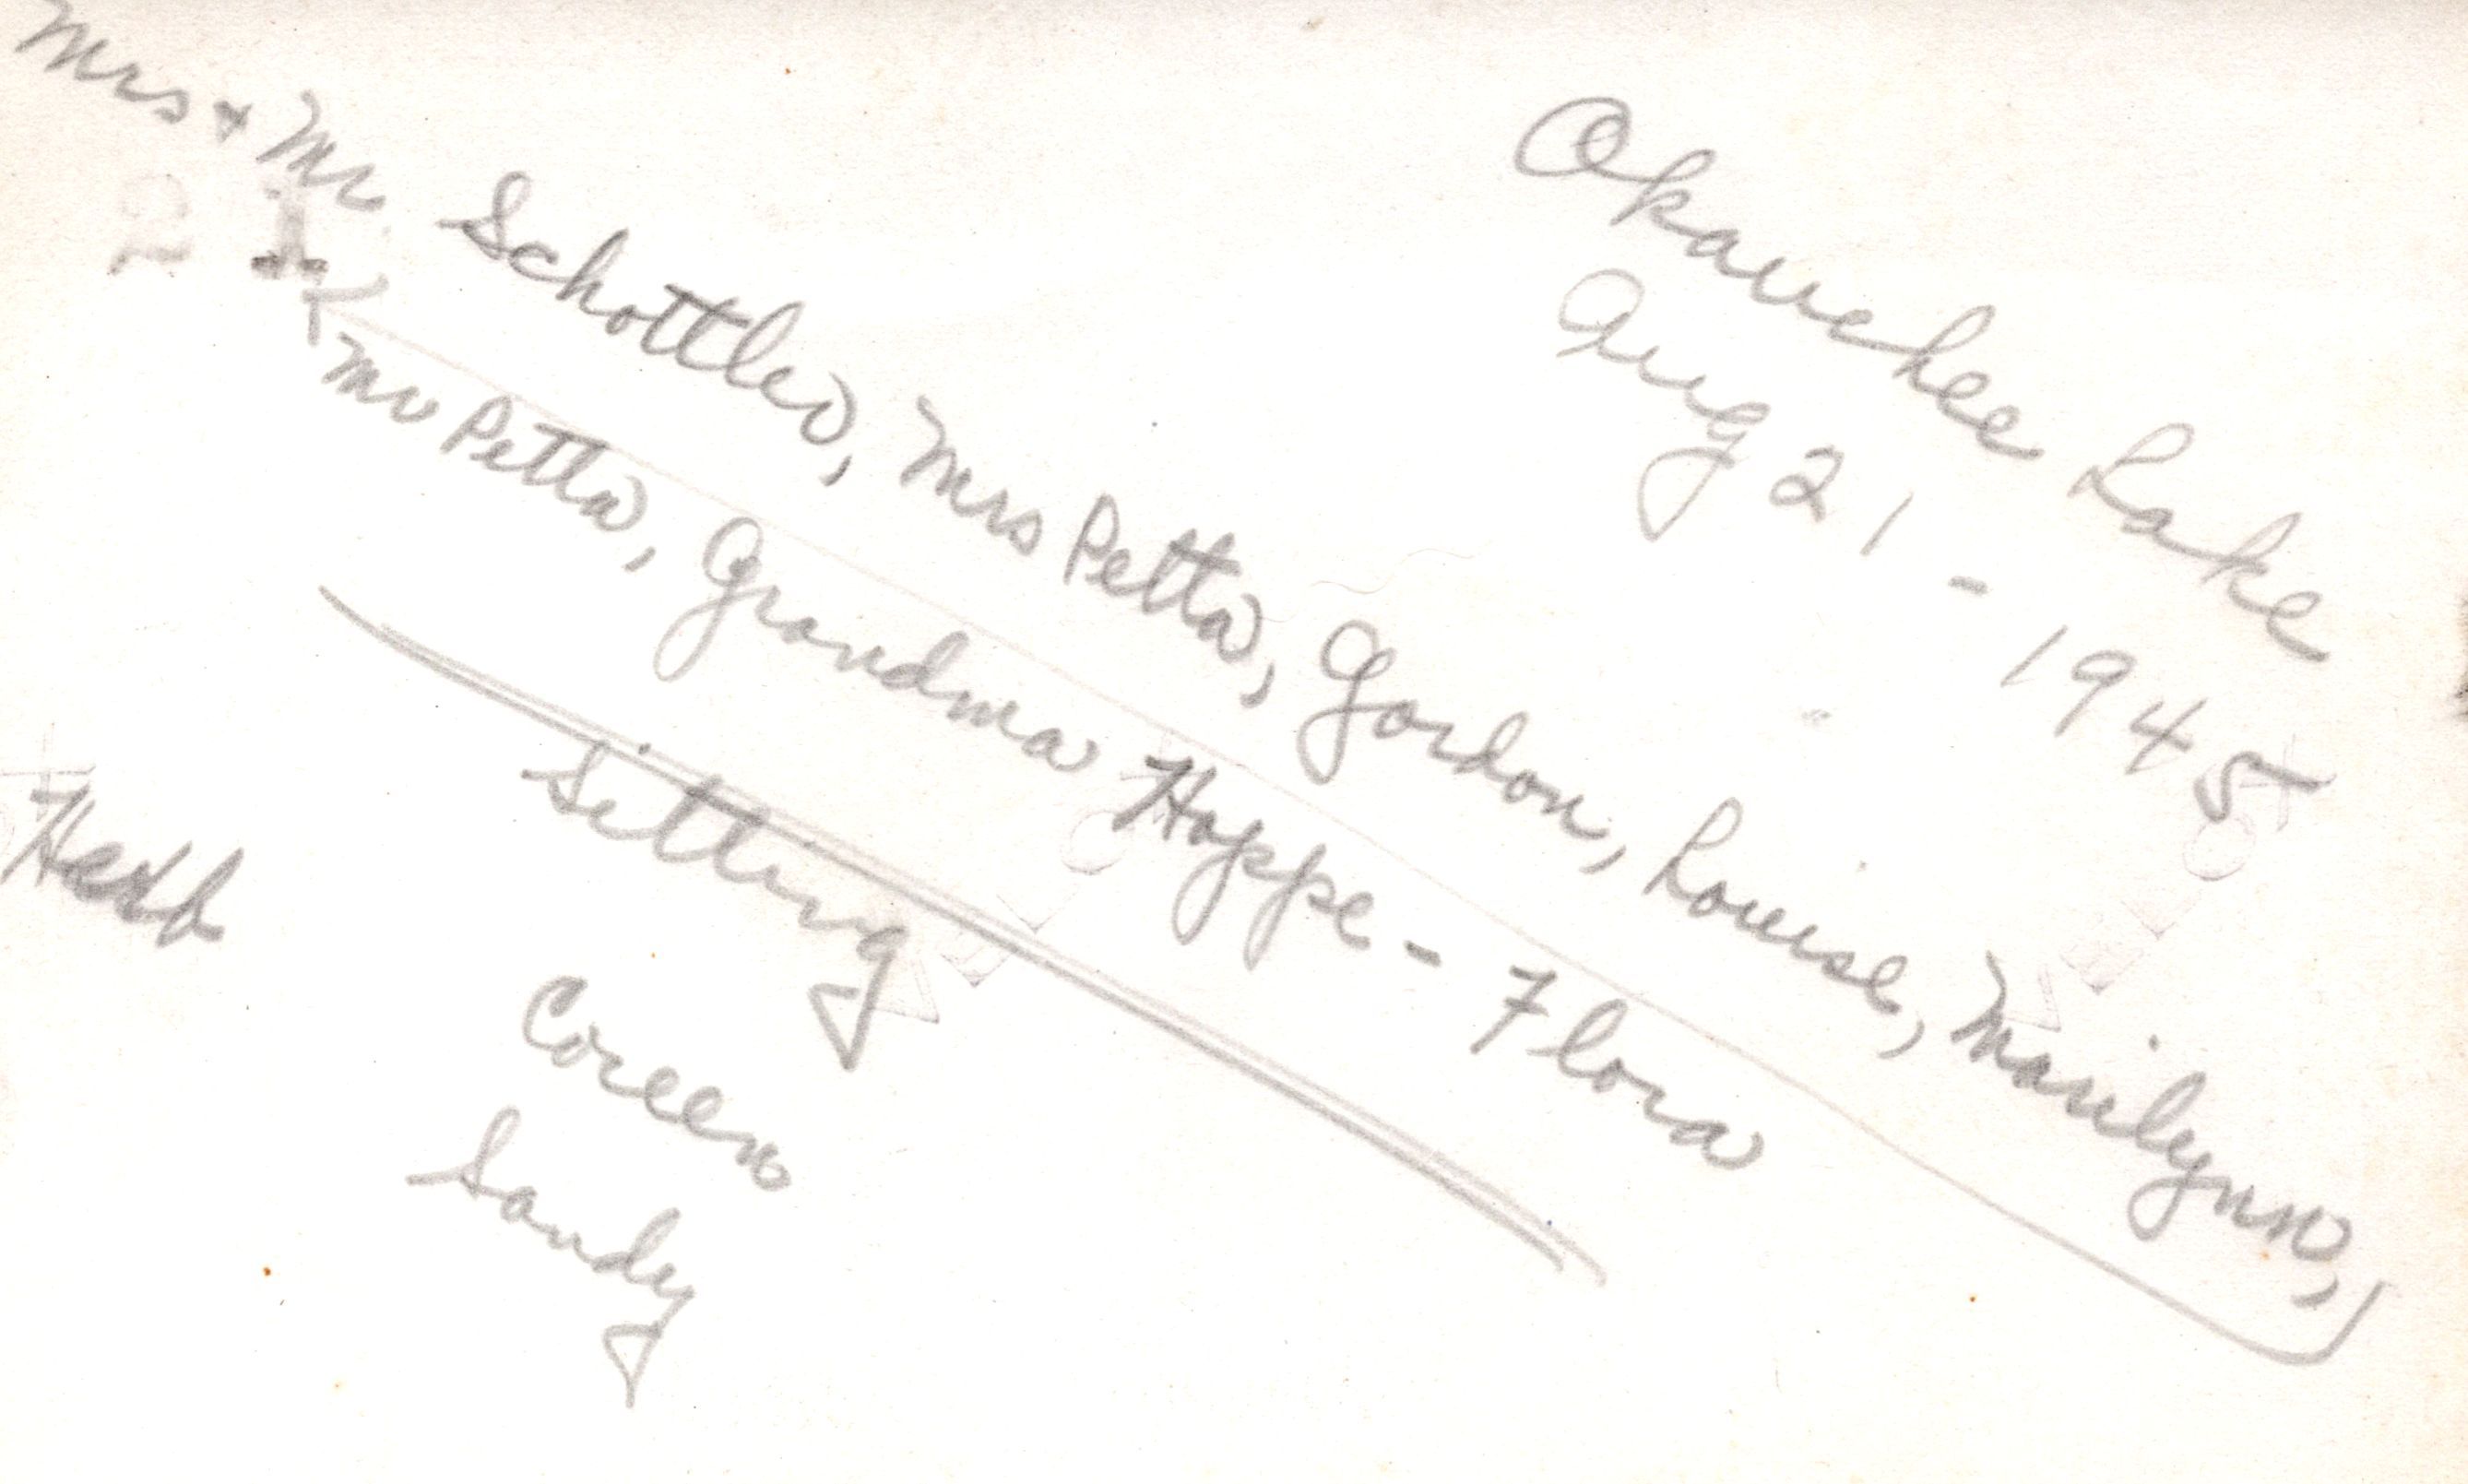 Okauchee Lake
Aug 21 - 1945
Mrs + Mr Schottler, Mrs Petta, Gordon, Louise, Marilynn,
Mr Petta, Grandma Hoppe - Flora
Sitting
Coreen
Sandy
21
VELOX
VELOX